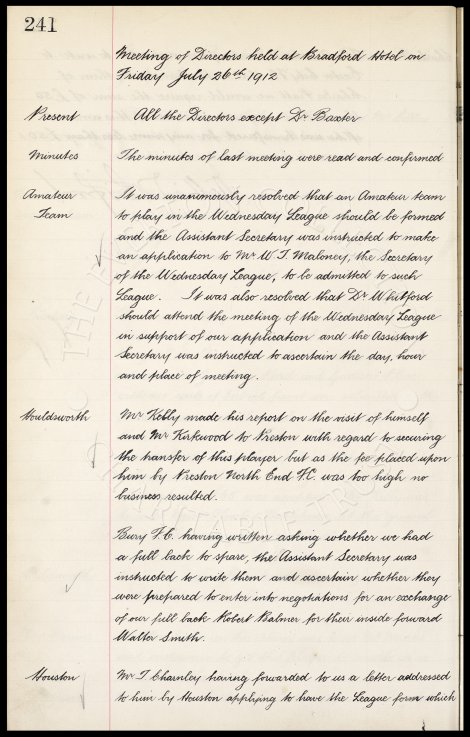 241
Meeting of Directors held at Bradford Hotel on
Friday July 26th 1912
Present All the Directors except Dr Baxter
Minutes The minutes of last meeting were read and confirmed
Amateur It was unanimously resolved that an Amateur team
Team to play in the Wednesday League should be formed
and the Assistant Secretary was instructed to make
an application to Mr W. J. Maloney, the Secretary
of the Wednesday League, to be admitted to such
League. It was also resolved that Dr Whitford
should attend the meeting of the Wednesday League
in support of our application and the Assistant
Secretary was instructed to ascertain the day, hour
and place of meeting.
Houldsworth Mr Kelly made his report on the visit of himself
and Mr Kirkwood to Preston with regard to securing
the transfer of this player but as the fee placed upon
him by Preston North End F.C. was too high no
business resulted.
Bury F.C. having written asking whether we had
a full back to spare, the Assistant Secretary was
instructed to write them and ascertain whether they
were prepared to enter into negotiations for an exchange
of our full back Robert Balmer for their inside forward
Walter Smith.
Houston Mr T Charnley having forwarded to us a letter addressed
to him by Houston applying to have the League form which